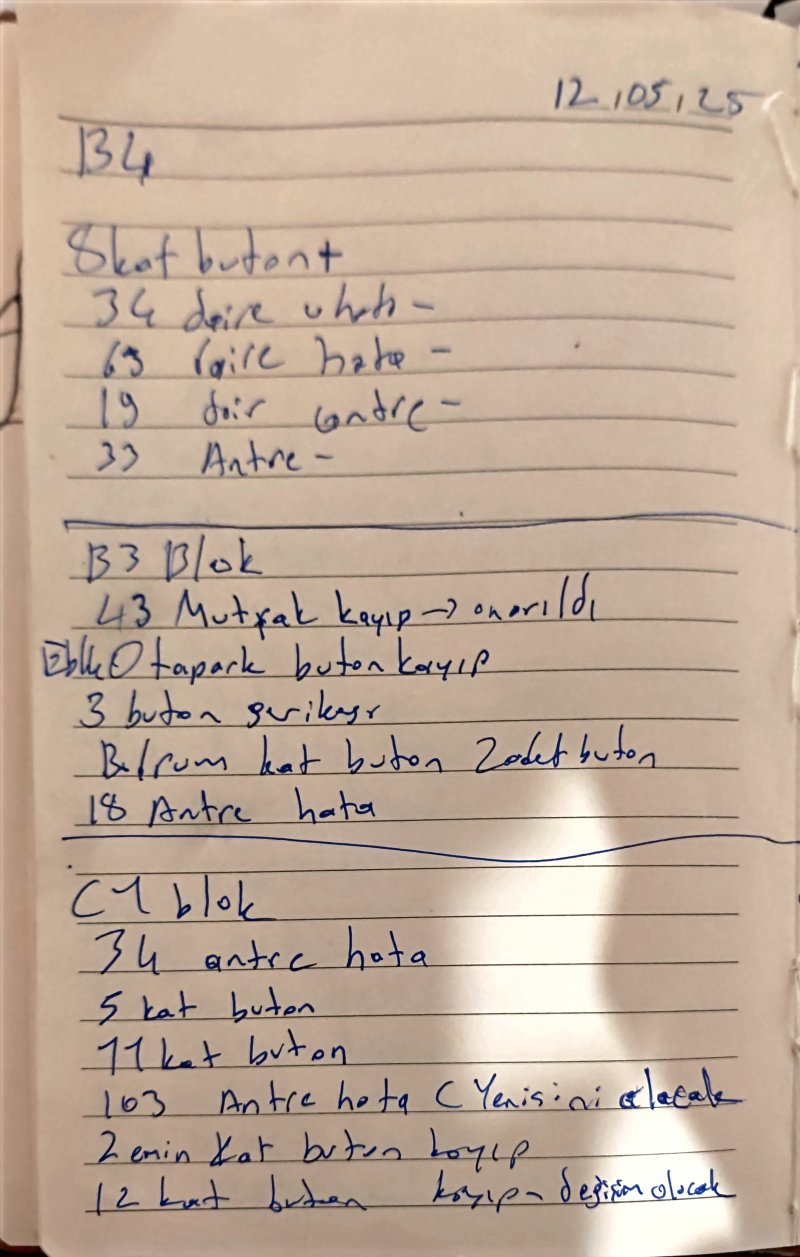 12,05,25
B4
8 kat buton +
34 daire hata -
63 daire hata -
19 dair antre -
33 Antre -
B3 Blok
43 Mutfak kayıp → onarıldı
Otapark buton kayıp
3 buton
Bodrum kat buton 2 adet buton
18 Antre hata
C1 blok
34 antre hata
5 kat buton
11 kat buton
103 Antre hata ( Yenisini alacak
Zemin kat buton kayıp
12 kat buton kayıp - değişim olacak